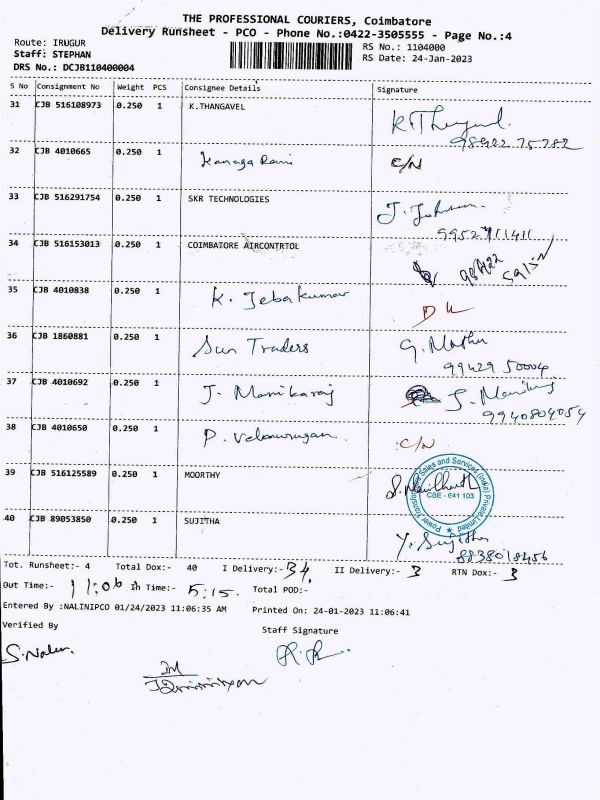 THE PROFESSIONAL COURIERS, Coimbatore
Delivery Runsheet - PCO - Phone No.:0422-3505555 - Page No.:4
Route: IRUGUR
Staff: STEPHAN
DRS No.: DCJB110400004
RS No.: 1104000
RS Date: 24-Jan-2023
S No Consignment No Weight PCS Consignee Details Signature
31 CJB 516108973 0.250 1 K.THANGAVEL
32 CJB 4010665 0.250 1 Kanaga Rani C/N
33 CJB 516291754 0.250 1 SKR TECHNOLOGIES J. Johnson
9952711411
34 CJB 516153013 0.250 1 COIMBATORE AIRCONTRTOL
35 CJB 4010838 0.250 1 K. Jebakumar DL
36 CJB 1860881 0.250 1 Sun Traders G. Mathu
99429 50004
37 CJB 4010692 0.250 1 J. Manikaraj J. Manikaraj
9940804054
38 CJB 4010650 0.250 1 P. Velmurugan C/N
39 CJB 516125589 0.250 1 MOORTHY
Sales and Services (India) Private Limited
CBE - 641 103
40 CJB 89053850 0.250 1 SUJITHA Y. Sujitha
8838018456
Tot. Runsheet:- 4 Total Dox:- 40 I Delivery:- 34. II Delivery:- 3 RTN Dox:- 3
Out Time:- 11:06 In Time:- 5:15. Total POD:-
Entered By :NALINIPCO 01/24/2023 11:06:35 AM Printed On: 24-01-2023 11:06:41
Verified By Staff Signature